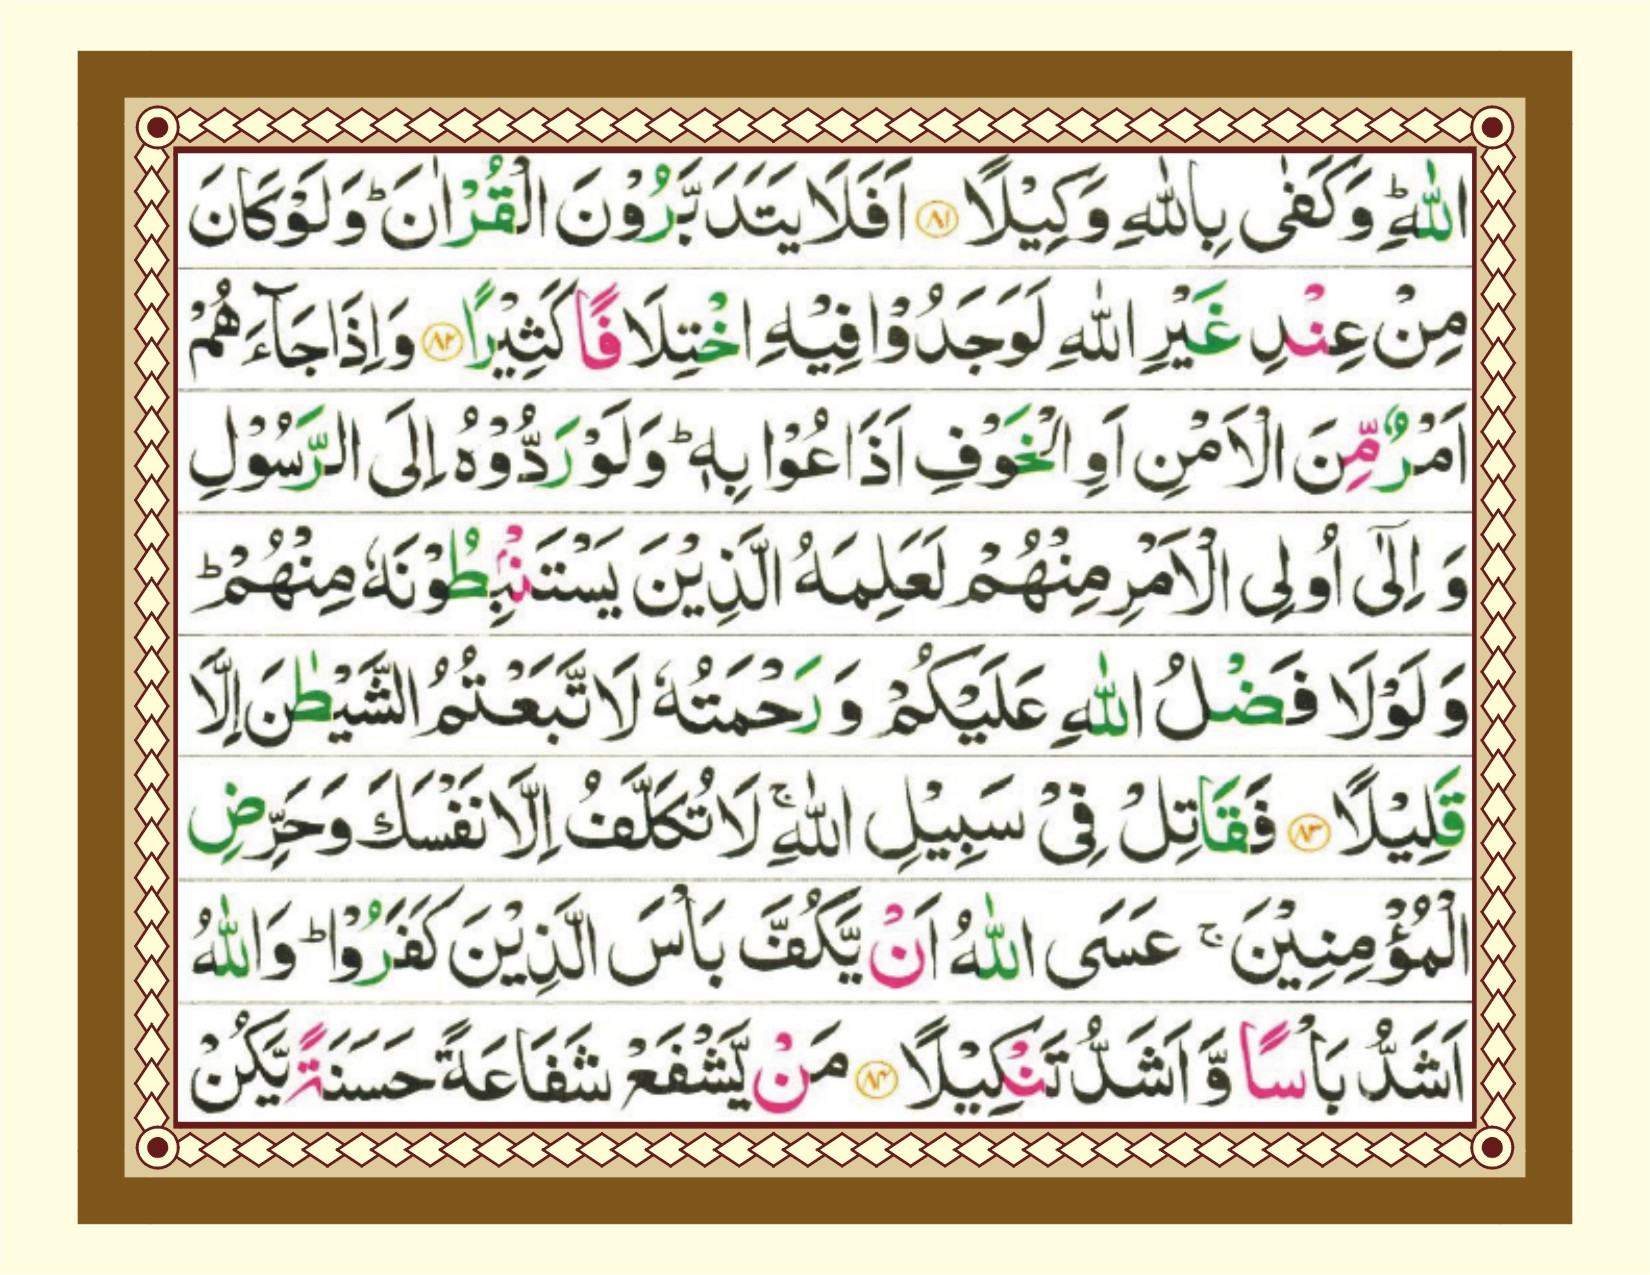 اللّٰهِ ؕ وَكَفٰى بِاللّٰهِ وَكِيْلًا ﴿۸۱﴾ اَفَلَا يَتَدَبَّرُوْنَ الْقُرْاٰنَ ؕ وَلَوْ كَانَ
مِنْ عِنْدِ غَيْرِ اللّٰهِ لَوَجَدُوْا فِيْهِ اخْتِلَافًا كَثِيْرًا ﴿۸۲﴾ وَاِذَا جَآءَهُمْ
اَمْرٌ مِّنَ الْاَمْنِ اَوِ الْخَوْفِ اَذَاعُوْا بِهٖ ؕ وَلَوْ رَدُّوْهُ اِلَى الرَّسُوْلِ
وَ اِلٰٓى اُولِى الْاَمْرِ مِنْهُمْ لَعَلِمَهُ الَّذِيْنَ يَسْتَنْۢبِطُوْنَهٗ مِنْهُمْ ؕ
وَ لَوْلَا فَضْلُ اللّٰهِ عَلَيْكُمْ وَ رَحْمَتُهٗ لَاتَّبَعْتُمُ الشَّيْطٰنَ اِلَّا
قَلِيْلًا ﴿۸۳﴾ فَقَاتِلْ فِىْ سَبِيْلِ اللّٰهِ ۚ لَا تُكَلَّفُ اِلَّا نَفْسَكَ وَحَرِّضِ
الْمُؤْمِنِيْنَ ۚ عَسَى اللّٰهُ اَنْ يَّكُفَّ بَاْسَ الَّذِيْنَ كَفَرُوْا ؕ وَاللّٰهُ
اَشَدُّ بَاْسًا وَّ اَشَدُّ تَنْكِيْلًا ﴿۸۴﴾ مَنْ يَّشْفَعْ شَفَاعَةً حَسَنَةً يَّكُنْ